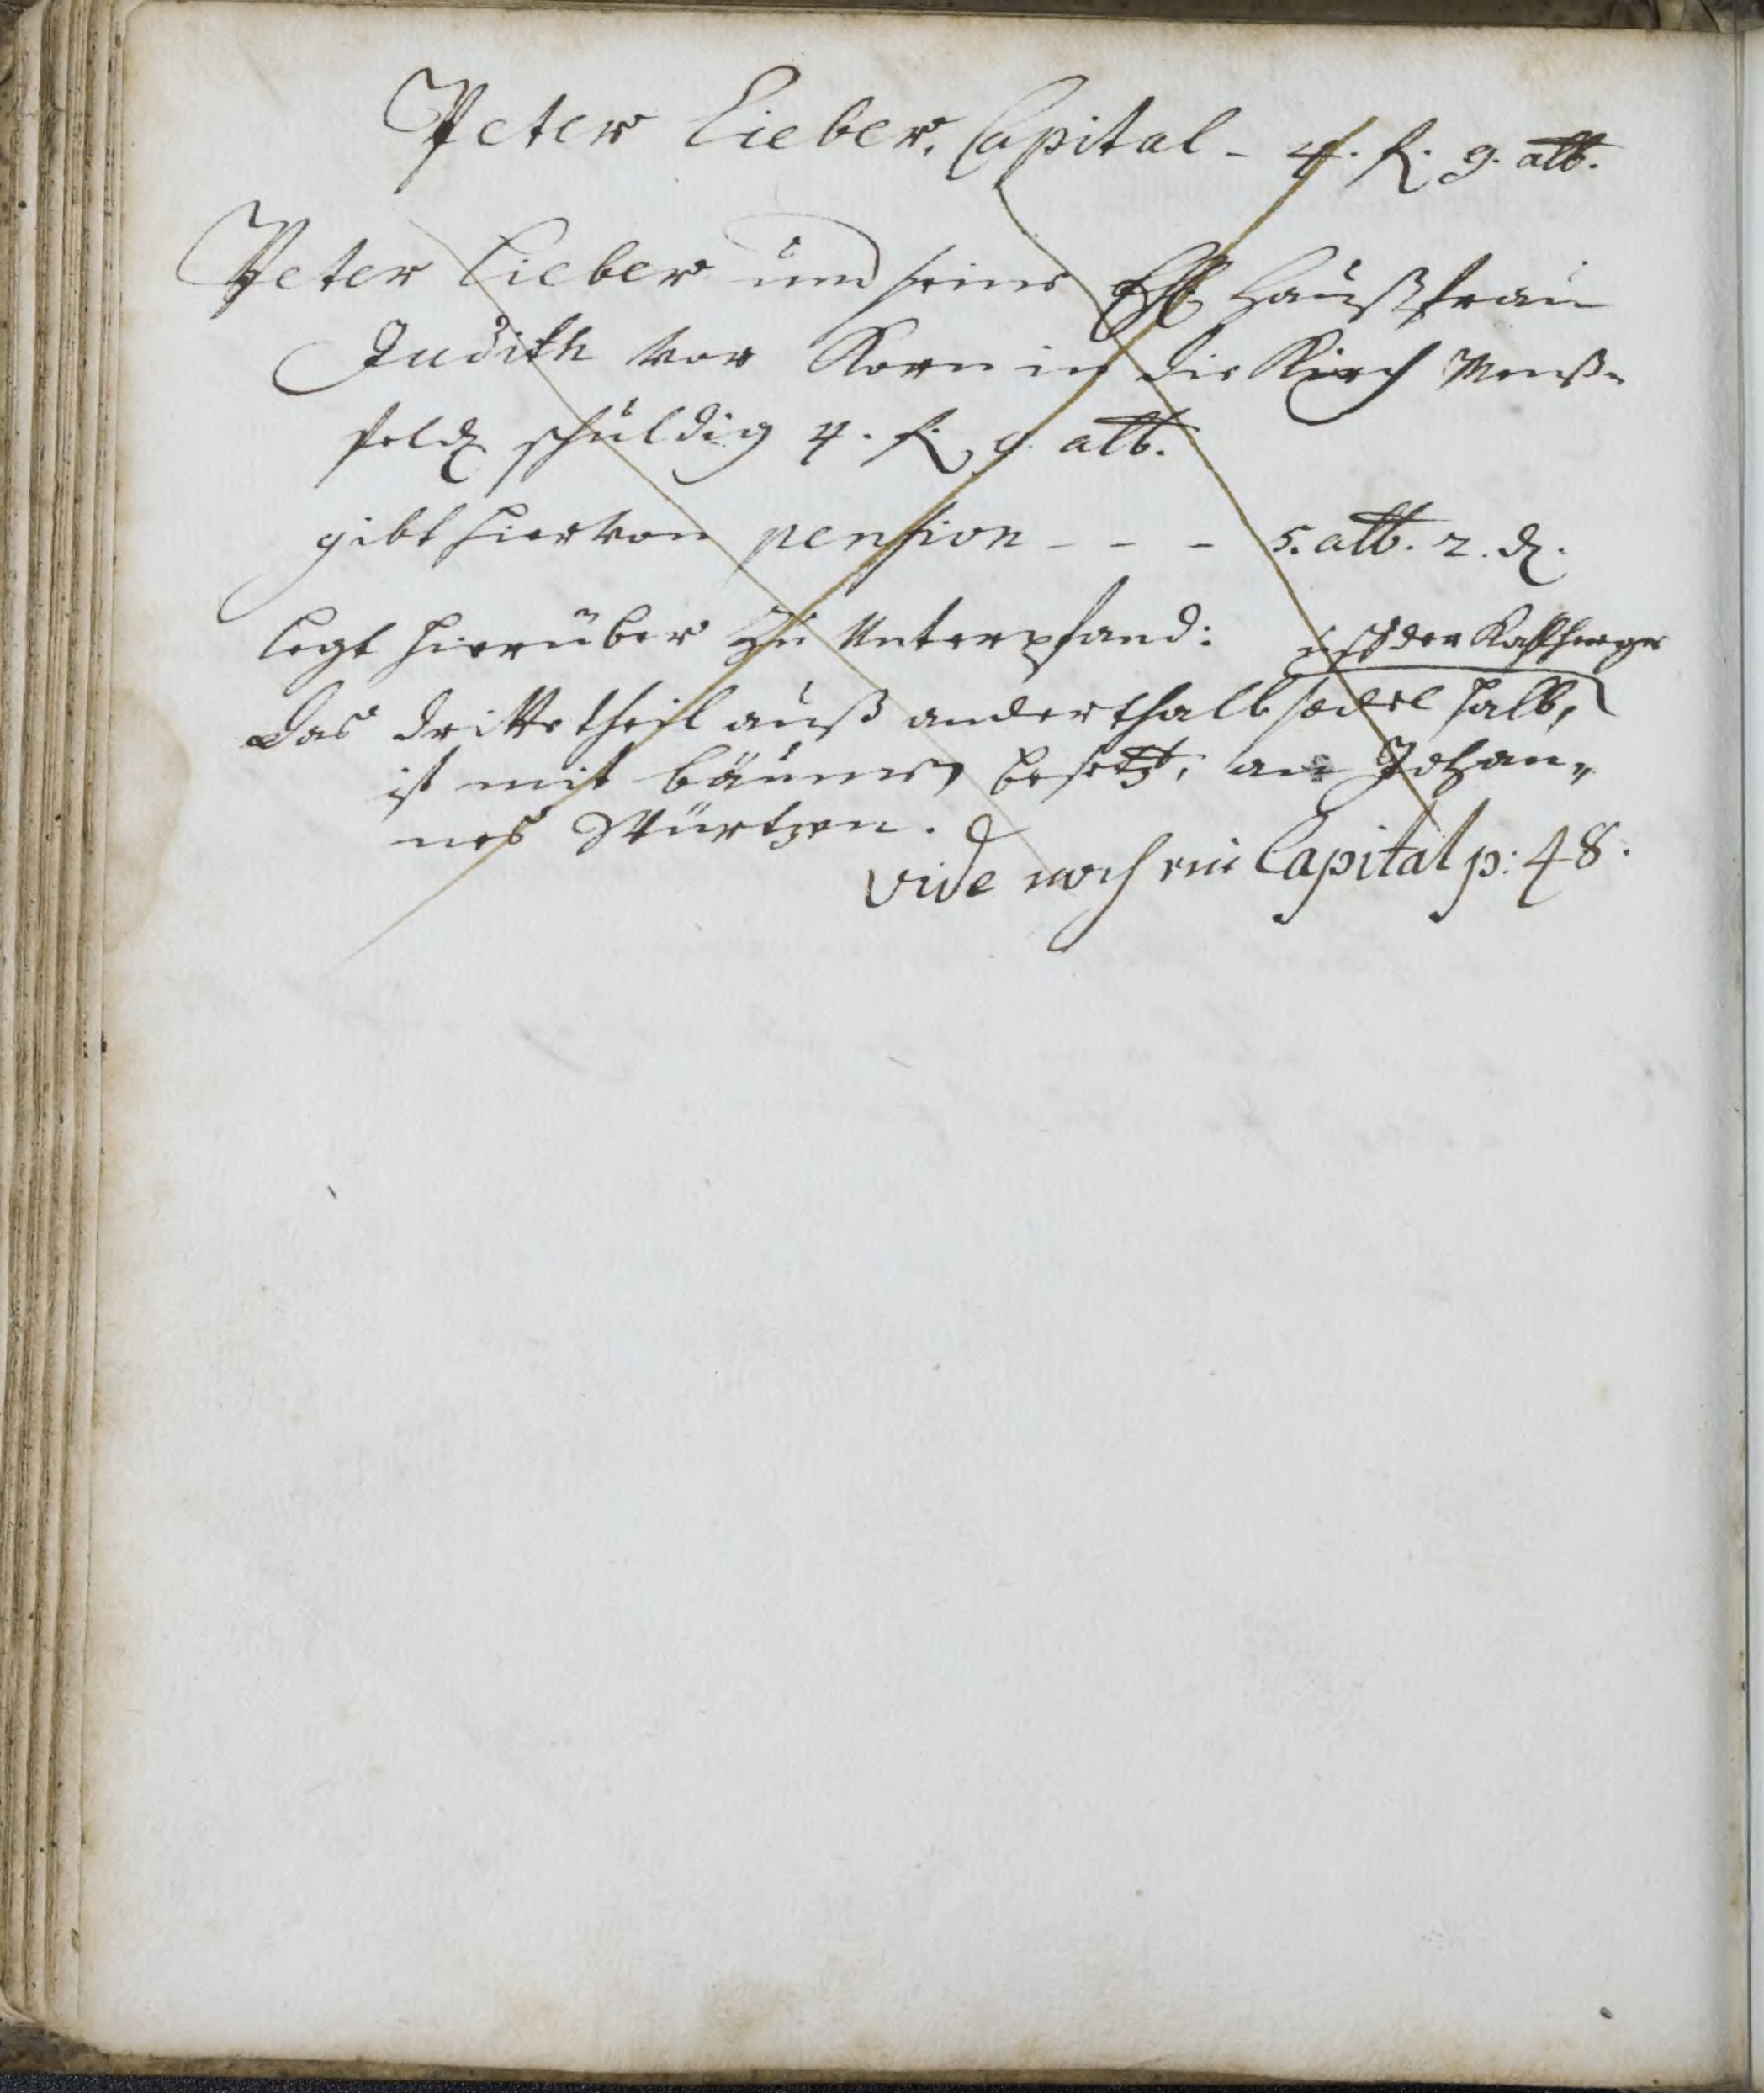 Peter Lieber, Capital - 4. fl. 9. alb.
Peter Lieber und seine Ehl. Haußfrau
Judith vor Korn in die Kirch Menß-
feld schuldig 4. fl. 9. alb.
gibt hiervon pension - - - 5. alb. 2. d.
legt hierüber zu Unterpfand:
der
Das dritte theil auß anderthalb sodel halb,
ist mit bäumen besetzt, an Johan-
nes Würtzen.
vide noch ein Capital p: 48.